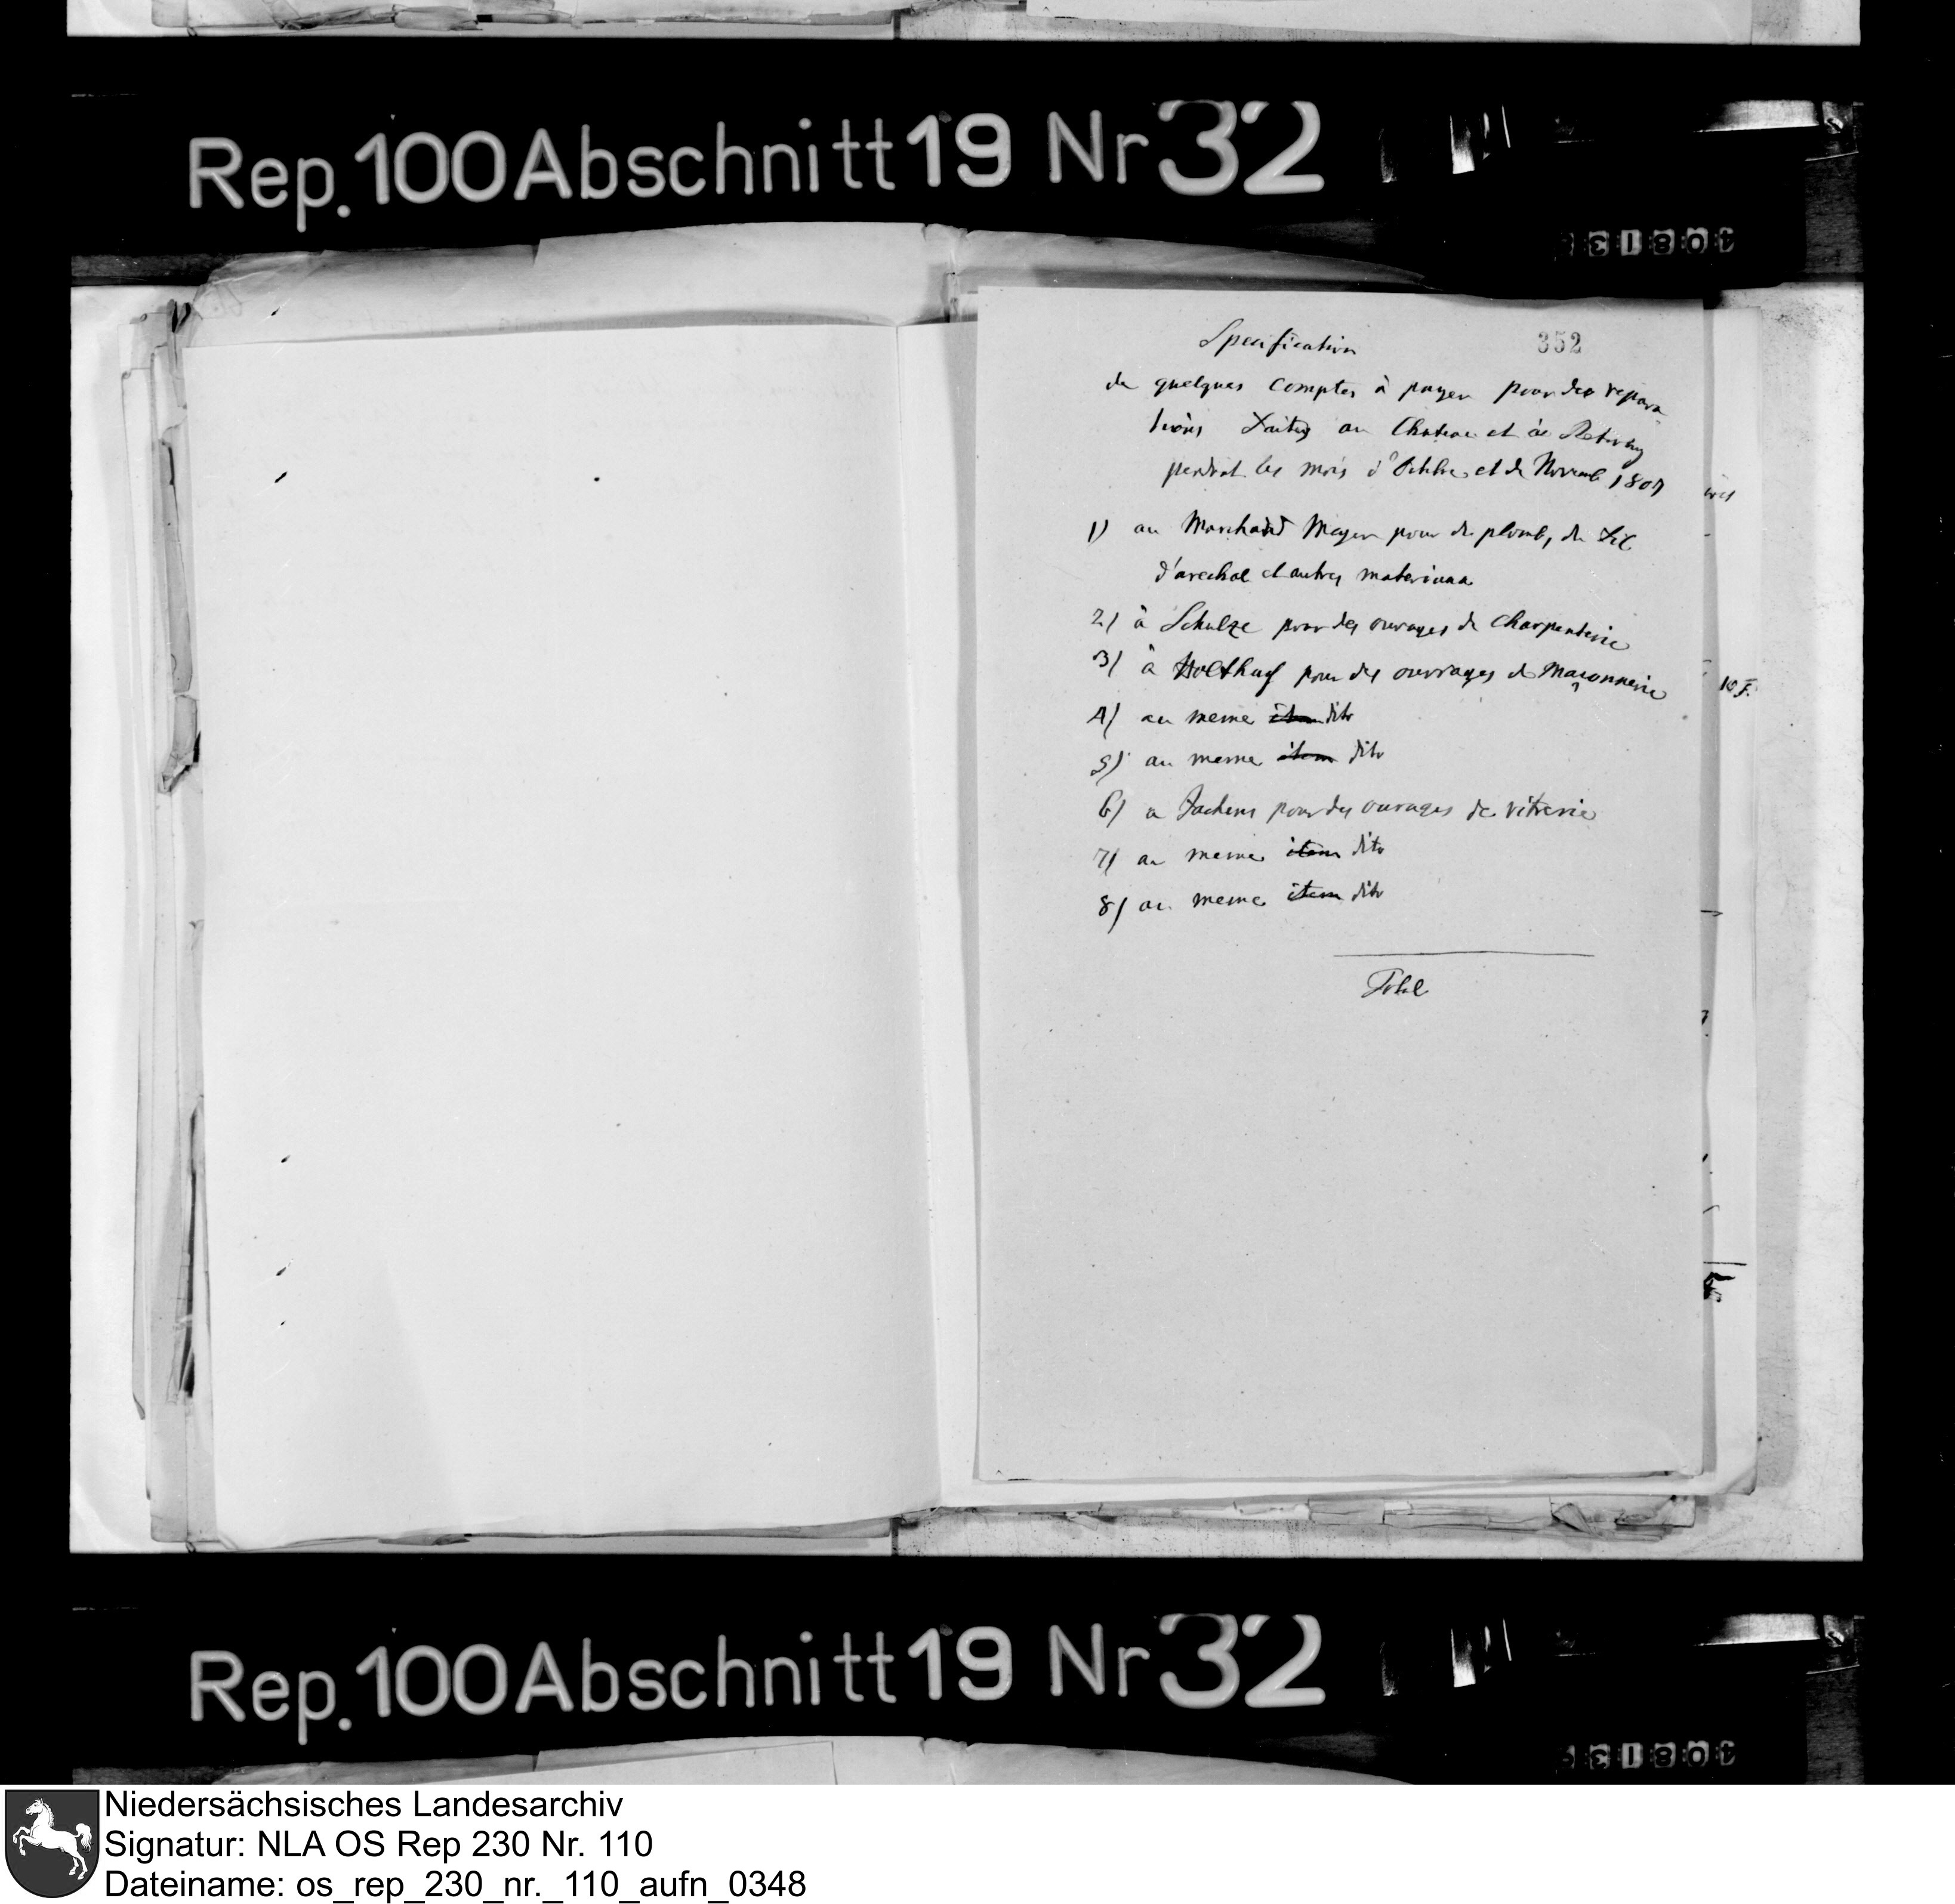 Rep. 100 Abschnitt 19 Nr 32
352
Specification
de quelques comptes à payer pour des repara-
tions faites au Chateau et à
pendant les mois d'Octobre et de Novemb 1807
1) au Marchand Meyer pour de plomb, du fil
d'arechal et autres materiaux
2) à Schulze pour des ouvrages de Charpenterie
3) à Holthaus pour des ouvrages de maçonnerie
4) au meme item dito
5) au meme item dito
6) a Jachens pour des ouvrages de vitrerie
7) au meme item dito
8) au meme item dito
Total
10 F.
Rep. 100 Abschnitt 19 Nr 32
Niedersächsisches Landesarchiv
Signatur: NLA OS Rep 230 Nr. 110
Dateiname: os_rep_230_nr._110_aufn_0348